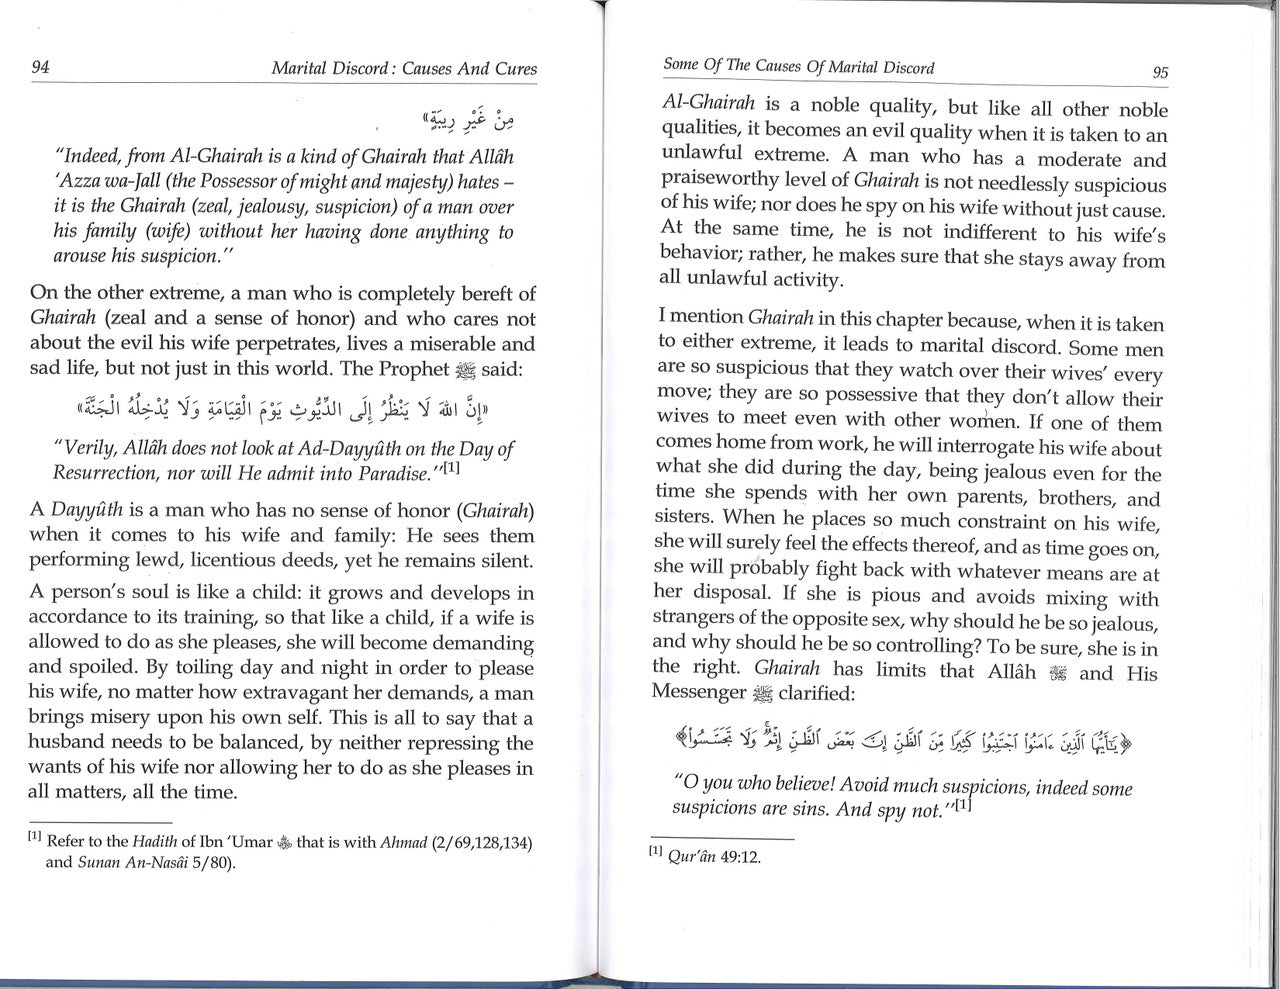 94
Marital Discord : Causes And Cures
مِنْ غَيْرِ رِيبَةٍ»
“Indeed, from Al-Ghairah is a kind of Ghairah that Allâh
‘Azza wa-Jall (the Possessor of might and majesty) hates –
it is the Ghairah (zeal, jealousy, suspicion) of a man over
his family (wife) without her having done anything to
arouse his suspicion.”
On the other extreme, a man who is completely bereft of
Ghairah (zeal and a sense of honor) and who cares not
about the evil his wife perpetrates, lives a miserable and
sad life, but not just in this world. The Prophet ﷺ said:
«إِنَّ اللهَ لَا يَنْظُرُ إِلَى الدَّيُّوثِ يَوْمَ الْقِيَامَةِ وَلَا يُدْخِلُهُ الْجَنَّةَ»
“Verily, Allâh does not look at Ad-Dayyûth on the Day of
Resurrection, nor will He admit into Paradise.”[1]
A Dayyûth is a man who has no sense of honor (Ghairah)
when it comes to his wife and family: He sees them
performing lewd, licentious deeds, yet he remains silent.
A person’s soul is like a child: it grows and develops in
accordance to its training, so that like a child, if a wife is
allowed to do as she pleases, she will become demanding
and spoiled. By toiling day and night in order to please
his wife, no matter how extravagant her demands, a man
brings misery upon his own self. This is all to say that a
husband needs to be balanced, by neither repressing the
wants of his wife nor allowing her to do as she pleases in
all matters, all the time.
[1] Refer to the Hadith of Ibn ‘Umar that is with Ahmad (2/69,128,134)
and Sunan An-Nasâi 5/80).
Some Of The Causes Of Marital Discord
95
Al-Ghairah is a noble quality, but like all other noble
qualities, it becomes an evil quality when it is taken to an
unlawful extreme. A man who has a moderate and
praiseworthy level of Ghairah is not needlessly suspicious
of his wife; nor does he spy on his wife without just cause.
At the same time, he is not indifferent to his wife’s
behavior; rather, he makes sure that she stays away from
all unlawful activity.
I mention Ghairah in this chapter because, when it is taken
to either extreme, it leads to marital discord. Some men
are so suspicious that they watch over their wives’ every
move; they are so possessive that they don’t allow their
wives to meet even with other women. If one of them
comes home from work, he will interrogate his wife about
what she did during the day, being jealous even for the
time she spends with her own parents, brothers, and
sisters. When he places so much constraint on his wife,
she will surely feel the effects thereof, and as time goes on,
she will probably fight back with whatever means are at
her disposal. If she is pious and avoids mixing with
strangers of the opposite sex, why should he be so jealous,
and why should he be so controlling? To be sure, she is in
the right. Ghairah has limits that Allâh ﷻ and His
Messenger ﷺ clarified:
﴿يَٰٓأَيُّهَا ٱلَّذِينَ ءَامَنُوا۟ ٱجْتَنِبُوا۟ كَثِيرًا مِّنَ ٱلظَّنِّ إِنَّ بَعْضَ ٱلظَّنِّ إِثْمٌ ۖ وَلَا تَجَسَّسُوا۟﴾
“O you who believe! Avoid much suspicions, indeed some
suspicions are sins. And spy not.”[1]
[1] Qur’ân 49:12.